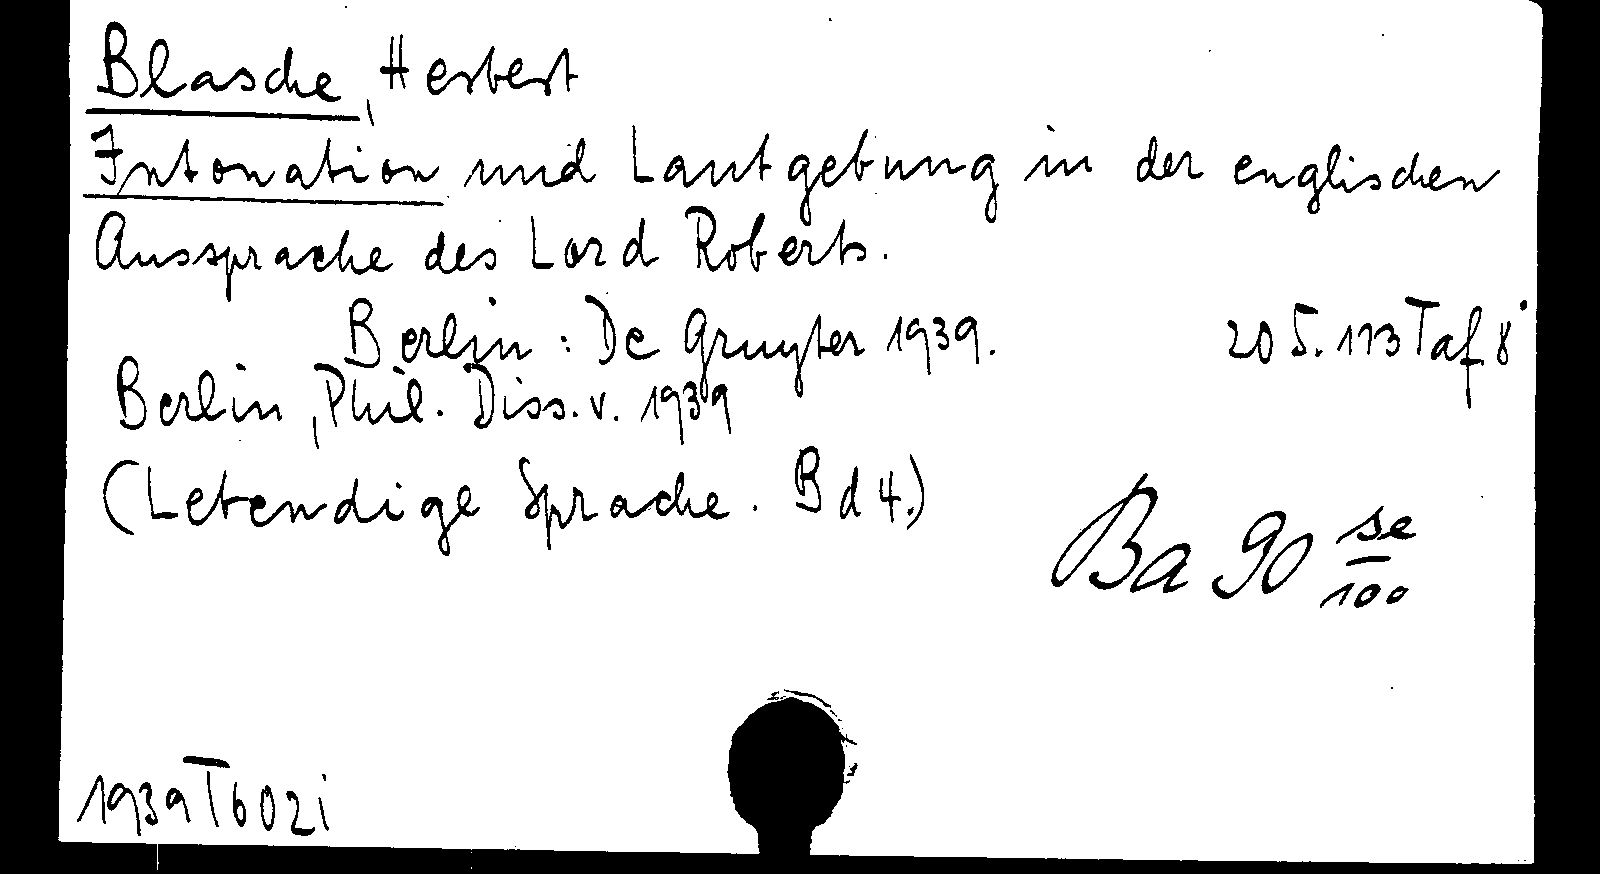 Blasche, Herbert
Intonation und Lautgebung in der englischen
Aussprache des Lord Roberts.
Berlin: De Gruyter 1939. 20 S. 113 Taf 8°
Berlin, Phil. Diss. v. 1939
(Lebendige Sprache. Bd 4.)
Ba 90 se/100
1939 T 602i